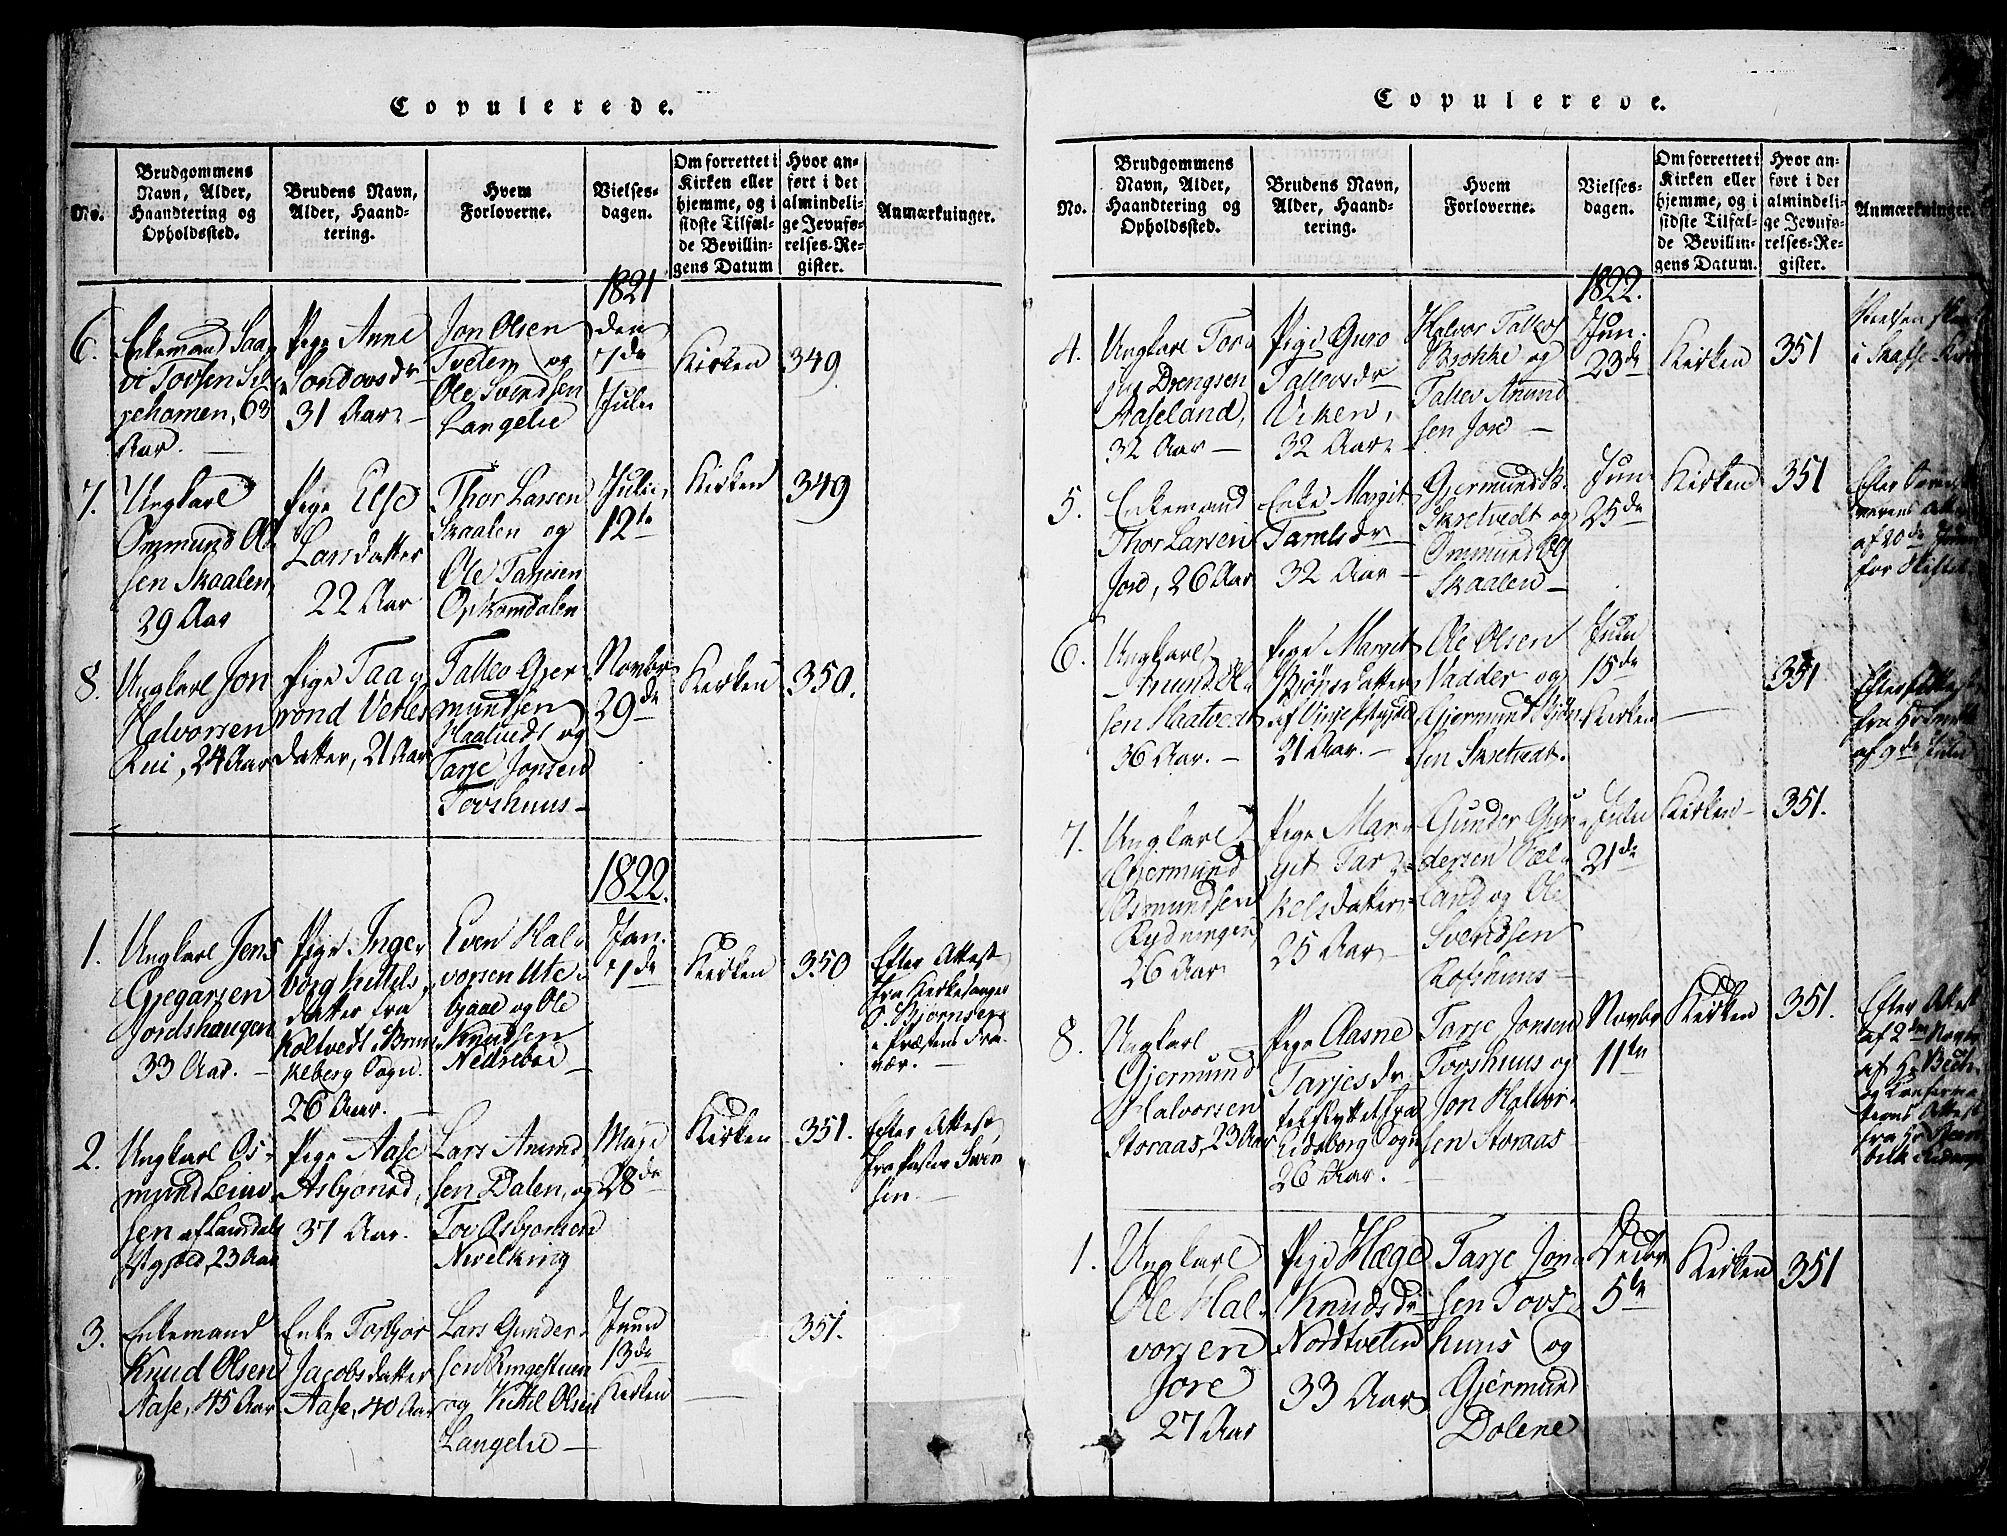 Copulerede.
No.
Brudgommens
Navn, Alder,
Haandtering og
Opholdssted.
Brudens Navn,
Alder, Haand-
tering.
Hvem
Forloverne.
Vielses-
dagen.
Om forrettet i
Kirken eller
hjemme, og i
sidste Tilfæl-
de Bevillin-
gens Datum
Hvor an-
ført i det
almindeli-
ge Jevnfø-
relses-Re-
gister.
Anmærkninger.
1821
6.
Enkemand Saa
vi Tovsen
63
Aar.
Pige Anne
Sondovsdr
31 Aar
Jon Olsen
Tveten og
Ole Svendsen
Langelie
den
7de
Juli
Kirken
349
7.
Ungkarl
Ommund Ol
sen Skaalen,
29 Aar
Pige Else
Larsdatter
22 Aar
Thor Larsen
Skaalen og
Ole Tarjesen
Opkomdalen
Julii
12te
Kirken
349
8.
Ungkarl Jon
Halvorsen
Rui, 24 Aar
Pige Taa
rond Vetles
datter, 21 Aar
Tallev Gjer
mundsen
Haatvedt og
Tarje Jonsen
Tovshuus
Novbr
29de
Kirken
350.
1822.
1.
Ungkarl Jens
Gregarsen
Jordshaugen
33 Aar.
Pige Inge
borg Kittels
datter fra
Koltvedt i Brun
keberg Sogn.
26 Aar.
Even Hal
vorsen Ute
bjaae og Ole
Knudsen
Nedrebøe
Jan.
7de
Kirken
350
Efter Attest
fra Kirkesanger
S. Bjørnsen
i Præstens Fra-
vær.
2.
Ungkarl Os-
mund Leiu
sen af Laurdals
Pgjeld, 23 Aar
Pige Aase
Asbjønsd,
37 Aar.
Lars Anund
sen Dalen, og
Tov Asbjornsen
Nirelking
Maji
28de
Kirken
351.
Efter Attest
fra Pastor Sven
sen.
3.
Enkemand
Knud Olsen
Aase, 45 Aar
Enke Torbjør
Jacobsdatter
Aase, 40 Aar
Lars Gunder
sen Ringestuen
og Kittil Olsen
Langelie
Juni
13de
Kirken
351.
Copulerede.
No.
Brudgommens
Navn, Alder,
Haandtering og
Opholdssted.
Brudens Navn,
Alder, Haand-
tering.
Hvem
Forloverne.
Vielses-
dagen.
Om forrettet i
Kirken eller
hjemme, og i
sidste Tilfæl-
de Bevillin-
gens Datum.
Hvor an-
ført i det
almindeli-
ge Jevnfø-
relses-Re-
gister.
Anmærkninger.
1822.
4.
Ungkarl Tor
Drengsen
Aaseland,
32 Aar
Pige Guro
Tallevsdr
Viken,
32 Aar
Halvor Tallevs
Brokke og
Tallev Anund
sen Jore
Jun.
23de
Kirken
351
Vielsen
i Skafse
5.
Enkemand
Thor Larsen
Jore, 26 Aar
Enke Margit
Tarelsdr
32 Aar
Gjermund B.
Skretvedt og
Ommund
Skaalen
Jun
25de
Kirken
351
Efter
af 20de
for Skiftet
6.
Ungkarl
Anund Ol
sen Haatvedt
36 Aar.
Pige Margit
Bjønsdatter
af Vinje Pgjeld
21 Aar.
Ole Olsen
Vadder og
Gjermund Bjøn
sen Skretvedt.
Julii
15de
Kirken
351
Efter Attest
fra
af 9de Julii
7.
Ungkarl
Gjermund
Osmundsen
Rydningen
26 Aar
Pige Mar
git Tar
kelsdatter
25 Aar
Gunder Gun
dersen Væl
land og Ole
Svendsen
Rofshuus
Julii
21de
Kirken
351.
8.
Ungkarl
Gjermund
Halvorsen
Storaas, 23 Aar
Pige Aasne
Tarjesdr
tilflyttet fra
Eidsborg Sogn
26 Aar.
Tarje Jonsen
Tovshuus og
Jon Halvor
sen Storaas
Novbr
11te
Kirken
351.
Efter Attest
af 2den Novbr
af Hr
og Confirma
tions Attest
fra Hr
1.
Ungkarl
Ole Hal
vorsen
Jore
27 Aar
Pige Hæge
Knudsdr
Nordtveten
33 Aar
Tarje Jon
sen Tovs
huus og
Gjermund
Dolene
Decbr
5te
Kirken
351